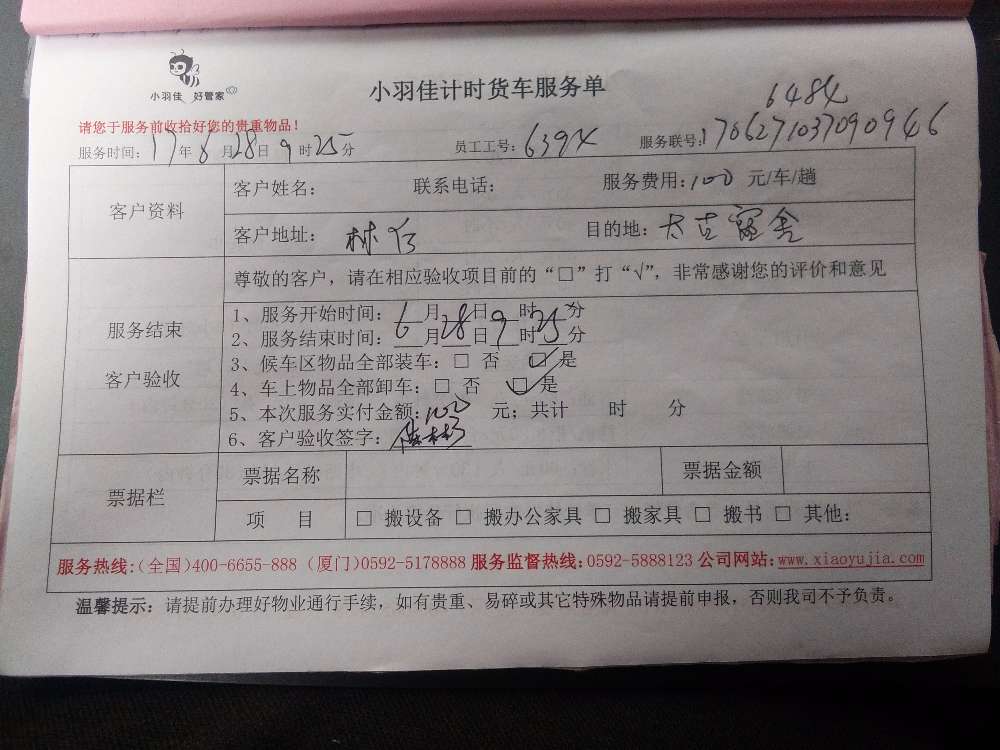 小羽佳 好管家
小羽佳计时货车服务单
6484
请您于服务前收拾好您的贵重物品!
服务时间: 17年6月28日9时25分 员工工号: 6394 服务联号: 1706271037090946
客户资料
客户姓名: 联系电话: 服务费用: 100 元/车/趟
客户地址: 林后 目的地: 太古宿舍
服务结束
客户验收
尊敬的客户,请在相应验收项目前的“□”打“√”,非常感谢您的评价和意见
1、服务开始时间: 6月28日9时25分
2、服务结束时间: 6月28日9时25分
3、候车区物品全部装车: □ 否 ☑ 是
4、车上物品全部卸车: □ 否 ☑ 是
5、本次服务实付金额: 100 元; 共计 时 分
6、客户验收签字:
票据栏
票据名称 票据金额
项 目 □ 搬设备 □ 搬办公家具 □ 搬家具 □ 搬书 □ 其他:
服务热线:(全国)400-6655-888 (厦门)0592-5178888 服务监督热线:0592-5888123 公司网站:www.xiaoyujia.com
温馨提示: 请提前办理好物业通行手续,如有贵重、易碎或其它特殊物品请提前申报,否则我司不予负责。